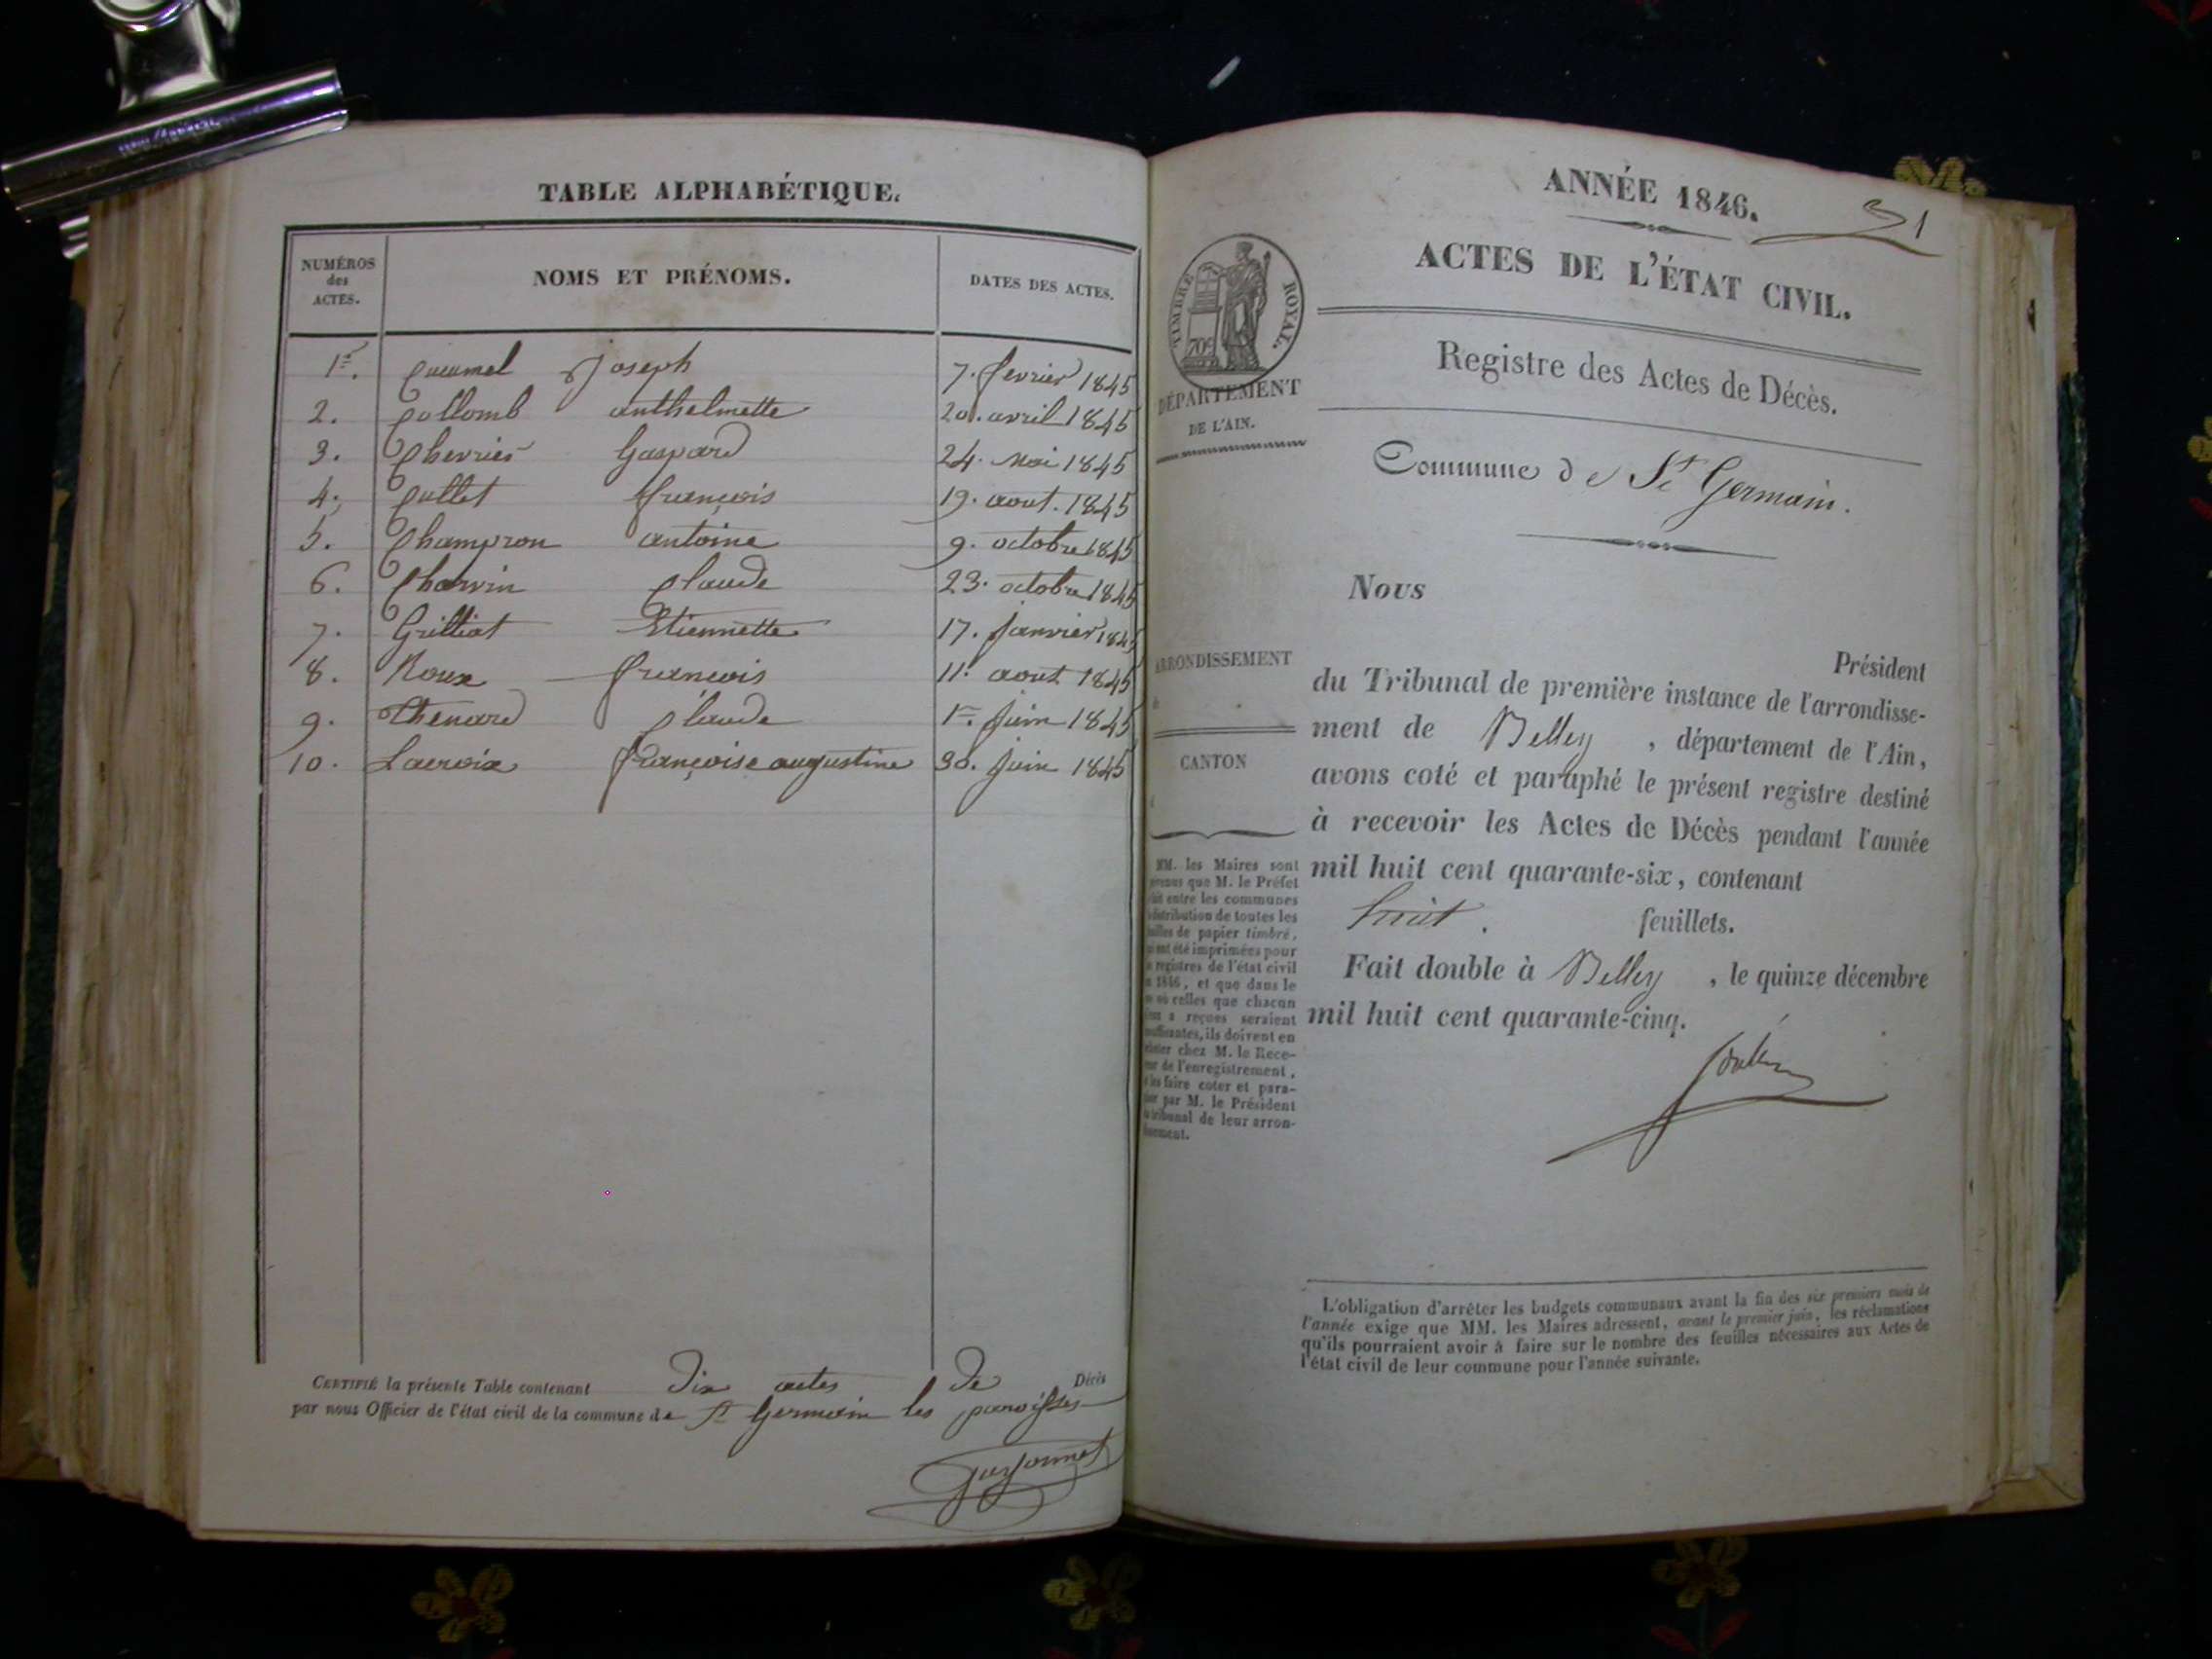 TABLE ALPHABÉTIQUE.
NUMÉROS des ACTES. NOMS ET PRÉNOMS. DATES DES ACTES.
1er. joseph 7. fevrier 1845
2. Collomb anthelmette 20. avril 1845
3. Chevrier Gaspard 24. Mai 1845
4. Cullet françois 19. aout. 1845
5. Champron antoine 9. octobre 1845
6. Charvin Claude 23. octobre 1845
7. Grilliat Etiennette 17. janvier 1845
8. Roux françois 11. aout 1845
9. Thenard Claude 1er. Juin 1845
10. Lacroix françoise augustine 30. Juin 1845
CERTIFIÉ la présente Table contenant dix actes de Décès
par nous Officier de l'état civil de la commune de St Germain les paroisses
ANNÉE 1846.
31
ACTES DE L'ÉTAT CIVIL.
TIMBRE ROYAL.
DÉPARTEMENT
DE L'AIN.
Registre des Actes de Décès.
Commune de St Germain.
ARRONDISSEMENT
CANTON
MM. les Maires sont
que M. le Préfet
fait entre les communes
distribution de toutes les
feuilles de papier timbré,
ont été imprimées pour
registres de l'état civil
1846, et que dans le
où celles que chacun
a reçues seraient
insuffisantes, ils doivent en
chez M. le Rece-
veur de l'enregistrement,
les faire coter et para-
pher par M. le Président
tribunal de leur arron-
dissement.
Nous
Président
du Tribunal de première instance de l'arrondisse-
ment de Belley, département de l'Ain,
avons coté et paraphé le présent registre destiné
à recevoir les Actes de Décès pendant l'année
mil huit cent quarante-six, contenant
huit. feuillets.
Fait double à Belley, le quinze décembre
mil huit cent quarante-cinq.
L'obligation d'arrêter les budgets communaux avant la fin des six premiers mois de
l'année exige que MM. les Maires adressent, avant le premier juin, les réclamations
qu'ils pourraient avoir à faire sur le nombre des feuilles nécessaires aux Actes de
l'état civil de leur commune pour l'année suivante.